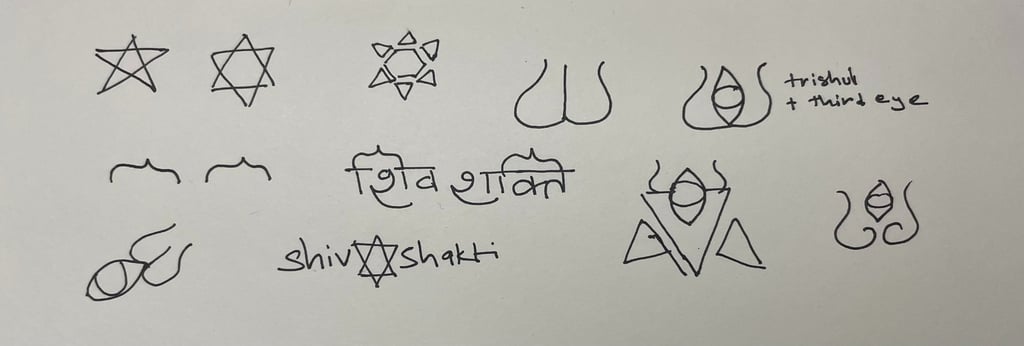 trishul
+ third eye
शिव शक्ति
shiv shakti